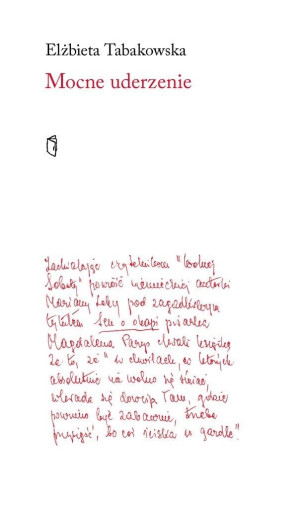 Elżbieta Tabakowska
Mocne uderzenie
Zachwalając czytelnikom "Wolnej
Soboty" powieść niemieckiej autorki
Mariany Leky pod zagadkowym
tytułem Sen o okapi pisarka
Magdalena Parys chwali książkę
za to, że "w chwilach, w których
absolutnie nie wolno się śmiać,
wkrada się dowcip. Tam, gdzie
powinno być zabawnie, trzeba
przyjść, bo coś ściska w gardle".